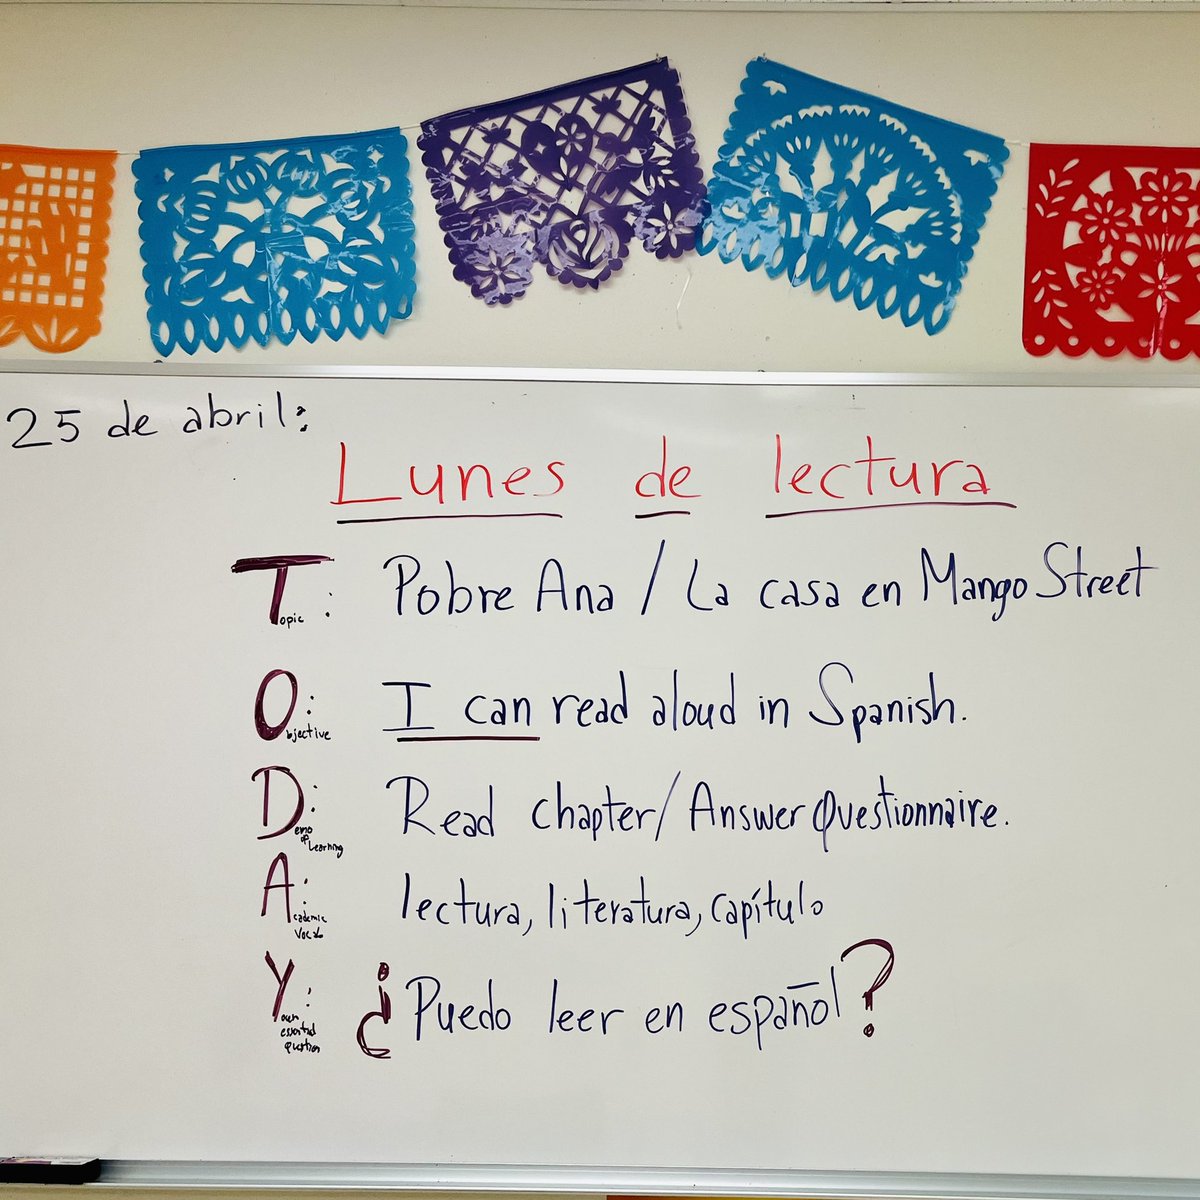 25 de abril:
Lunes de lectura
Topic: Pobre Ana / La casa en Mango Street
Objective: I can read aloud in Spanish.
Demo of Learning: Read chapter/Answer Questionnaire.
Academic Vocab: lectura, literatura, capítulo
Your essential question: ¿Puedo leer en español?